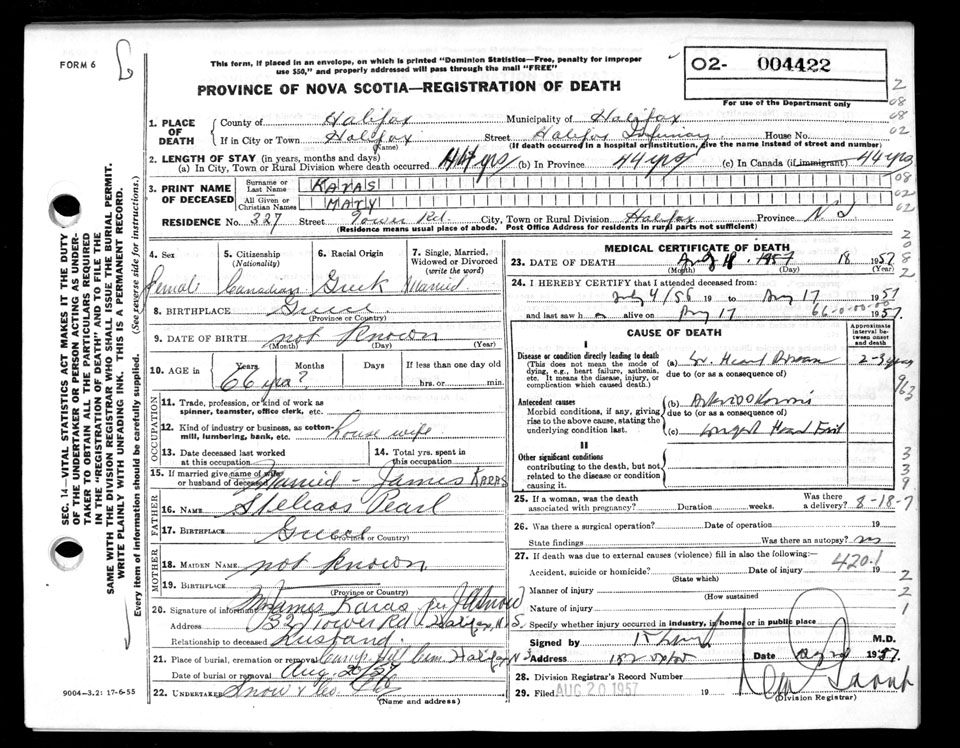 FORM 6
This form, if placed in an envelope, on which is printed "Dominion Statistics—Free, penalty for improper
use $50," and properly addressed will pass through the mail "FREE"
O2- 004422
For use of the Department only
PROVINCE OF NOVA SCOTIA—REGISTRATION OF DEATH
1. PLACE OF DEATH
County of Halifax Municipality of Halifax
If in City or Town Halifax Street Halifax Infirmary House No.
(Name) (If death occurred in a hospital or institution, give the name instead of street and number)
2. LENGTH OF STAY (in years, months and days)
(a) In City, Town or Rural Division where death occurred 44 yrs (b) In Province 44 yrs (c) In Canada (if immigrant) 44 yrs
3. PRINT NAME OF DECEASED
Surname or Last Name KARAS
All Given or Christian Names MARY
RESIDENCE No. 327 Street Tower Rd. City, Town or Rural Division Halifax Province N S
(Residence means usual place of abode. Post Office Address for residents in rural parts not sufficient)
4. Sex Female
5. Citizenship (Nationality) Canadian
6. Racial Origin Greek
7. Single, Married, Widowed or Divorced (write the word) Married
8. BIRTHPLACE Greece
(Province or Country)
9. DATE OF BIRTH not known
(Month) (Day) (Year)
10. AGE in Years Months Days If less than one day old
66 yrs? hrs. or min.
OCCUPATION
11. Trade, profession, or kind of work as spinner, teamster, office clerk, etc.
12. Kind of industry or business, as cotton-mill, lumbering, bank, etc. House wife
13. Date deceased last worked at this occupation
14. Total yrs. spent in this occupation
15. If married give name of wife or husband of deceased Married - James KARAS
FATHER
16. NAME Pearl
17. BIRTHPLACE Greece
(Province or Country)
MOTHER
18. MAIDEN NAME not known
19. BIRTHPLACE
(Province or Country)
20. Signature of informant James Karas per J A Snow
Address Tower Rd Halifax, N.S.
Relationship to deceased Husband.
21. Place of burial, cremation or removal Camp Hill Cem. Halifax N S
Date of burial or removal Aug.
22. UNDERTAKER Snow & Co
(Name and address)
MEDICAL CERTIFICATE OF DEATH
23. DATE OF DEATH Aug 18. 1957 18 1957
(Month) (Day) (Year)
24. I HEREBY CERTIFY that I attended deceased from
July 4/56 19 to Aug 17 1957
and last saw h alive on Aug 17 1957.
66-0-00-00
CAUSE OF DEATH
Approximate interval between onset and death
I
Disease or condition directly leading to death
(This does not mean the mode of dying, e.g., heart failure, asthenia, etc. It means the disease, injury, or complication which caused death.)
(a) Heart Disease 2-3 years
due to (or as a consequence of)
Antecedent causes
Morbid conditions, if any, giving rise to the above cause, stating the underlying condition last.
(b)
due to (or as a consequence of)
(c) Congest Heart Fail
II
Other significant conditions
contributing to the death, but not related to the disease or condition causing it.
25. If a woman, was the death associated with pregnancy? Duration weeks. Was there a delivery? 8-18-7
26. Was there a surgical operation? Date of operation 19
State findings Was there an autopsy? no
27. If death was due to external causes (violence) fill in also the following:
420.1
Accident, suicide or homicide? Date of injury 19
(State which)
Manner of injury
(How sustained
Nature of injury
Specify whether injury occurred in industry, in home, or in public place
Signed by M.D.
Address Date 1957.
28. Division Registrar's Record Number
29. Filed AUG 20 1957 19
(Division Registrar)
SEC. 14—VITAL STATISTICS ACT MAKES IT THE DUTY
OF THE UNDERTAKER OR PERSON ACTING AS UNDER-
TAKER TO OBTAIN ALL THE PARTICULARS REQUIRED
IN THE "REGISTRATION OF DEATH" AND TO FILE THE
SAME WITH THE DIVISION REGISTRAR WHO SHALL ISSUE THE BURIAL PERMIT.
WRITE PLAINLY WITH UNFADING INK. THIS IS A PERMANENT RECORD.
Every item of information should be carefully supplied. (See reverse side for instructions.)
9004-3.2: 17-6-55
2
08
08
02
08
02
02
2
0
8
2
/63
3
3
9
2
2
1